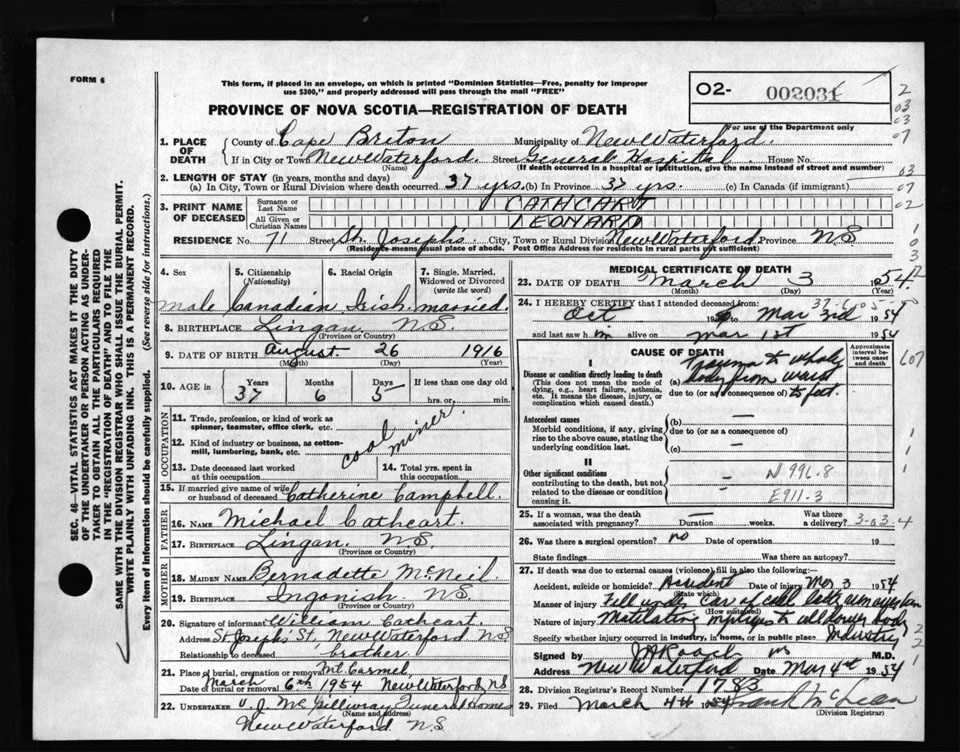 FORM 6
This form, if placed in an envelope, on which is printed "Dominion Statistics—Free, penalty for improper
use $300," and properly addressed will pass through the mail "FREE"
PROVINCE OF NOVA SCOTIA—REGISTRATION OF DEATH
O2- 002031
For use of the Department only
1. PLACE OF DEATH
County of Cape Breton Municipality of New Waterford.
If in City or Town New Waterford. Street General Hospital. House No.
(Name) (If death occurred in a hospital or institution, give the name instead of street and number)
2. LENGTH OF STAY (in years, months and days)
(a) In City, Town or Rural Division where death occurred 37 yrs. (b) In Province 37 yrs. (c) In Canada (if immigrant)
3. PRINT NAME OF DECEASED
Surname or Last Name CATHCART
All Given or Christian Names LEONARD
RESIDENCE No. 71 Street St. Joseph's. City, Town or Rural Division New Waterford Province N.S
(Residence means usual place of abode. Post Office Address for residents in rural parts not sufficient)
4. Sex 5. Citizenship (Nationality) 6. Racial Origin 7. Single, Married, Widowed or Divorced (write the word)
male Canadian Irish married.
8. BIRTHPLACE Lingan. N.S.
(Province or Country)
9. DATE OF BIRTH August 26 1916
(Month) (Day) (Year)
10. AGE in Years Months Days If less than one day old
37 6 5 hrs. or min.
OCCUPATION
11. Trade, profession, or kind of work as
spinner, teamster, office clerk, etc.
coal miner.
12. Kind of industry or business, as cotton-
mill, lumbering, bank, etc.
13. Date deceased last worked
at this occupation
14. Total yrs. spent in
this occupation
15. If married give name of wife
or husband of deceased Catherine Campbell.
FATHER
16. NAME Michael Cathcart.
17. BIRTHPLACE Lingan. N.S.
(Province or Country)
MOTHER
18. MAIDEN NAME Bernadette McNeil.
19. BIRTHPLACE Ingonish. N.S.
(Province or Country)
20. Signature of informant William Cathcart.
Address St. Joseph' St, New Waterford N.S
Relationship to deceased brother.
21. Place of burial, cremation or removal Mt. Carmel,
Date of burial or removal March 6th 1954 New Waterford, N.S.
22. UNDERTAKER V. J. McGillivray Funeral Homes
(Name and Address)
New Waterford N.S.
MEDICAL CERTIFICATE OF DEATH
23. DATE OF DEATH March 3 1954
(Month) (Day) (Year)
24. I HEREBY CERTIFY that I attended deceased from:
Oct 19 to Mar 3rd 1954
and last saw him alive on Mar 1st 1954
CAUSE OF DEATH
Approximate interval between onset and death
I
Disease or condition directly leading to death
(This does not mean the mode of
dying, e.g., heart failure, asthenia,
etc. It means the disease, injury, or
complication which caused death.)
(a) Trauma to whole
body from waist
due to (or as a consequence of) to feet.
Antecedent causes
Morbid conditions, if any, giving
rise to the above cause, stating the
underlying condition last.
(b) —
due to (or as a consequence of)
(c) —
II
Other significant conditions
contributing to the death, but not
related to the disease or condition
causing it.
N996.8
E911-3
25. If a woman, was the death
associated with pregnancy? — Duration weeks. Was there
a delivery?
26. Was there a surgical operation? no Date of operation 19
State findings Was there an autopsy?
27. If death was due to external causes (violence) fill in also the following:
Accident, suicide or homicide? Accident Date of injury Mar 3 1954
(State which)
Manner of injury Fell under car of coal
(How sustained)
Nature of injury Mutilating injuries to all lower body
Specify whether injury occurred in industry, in home, or in public place Industry
Signed by J A Roach M.D.
Address New Waterford Date Mar 4th 1954
28. Division Registrar's Record Number 1783
29. Filed March 4th 1954 Frank McLean
(Division Registrar)
SEC. 46—VITAL STATISTICS ACT MAKES IT THE DUTY
OF THE UNDERTAKER OR PERSON ACTING AS UNDER-
TAKER TO OBTAIN ALL THE PARTICULARS REQUIRED
IN THE "REGISTRATION OF DEATH" AND TO FILE THE
SAME WITH THE DIVISION REGISTRAR WHO SHALL ISSUE THE BURIAL PERMIT.
WRITE PLAINLY WITH UNFADING INK. THIS IS A PERMANENT RECORD.
Every item of Information should be carefully supplied. (See reverse side for instructions.)